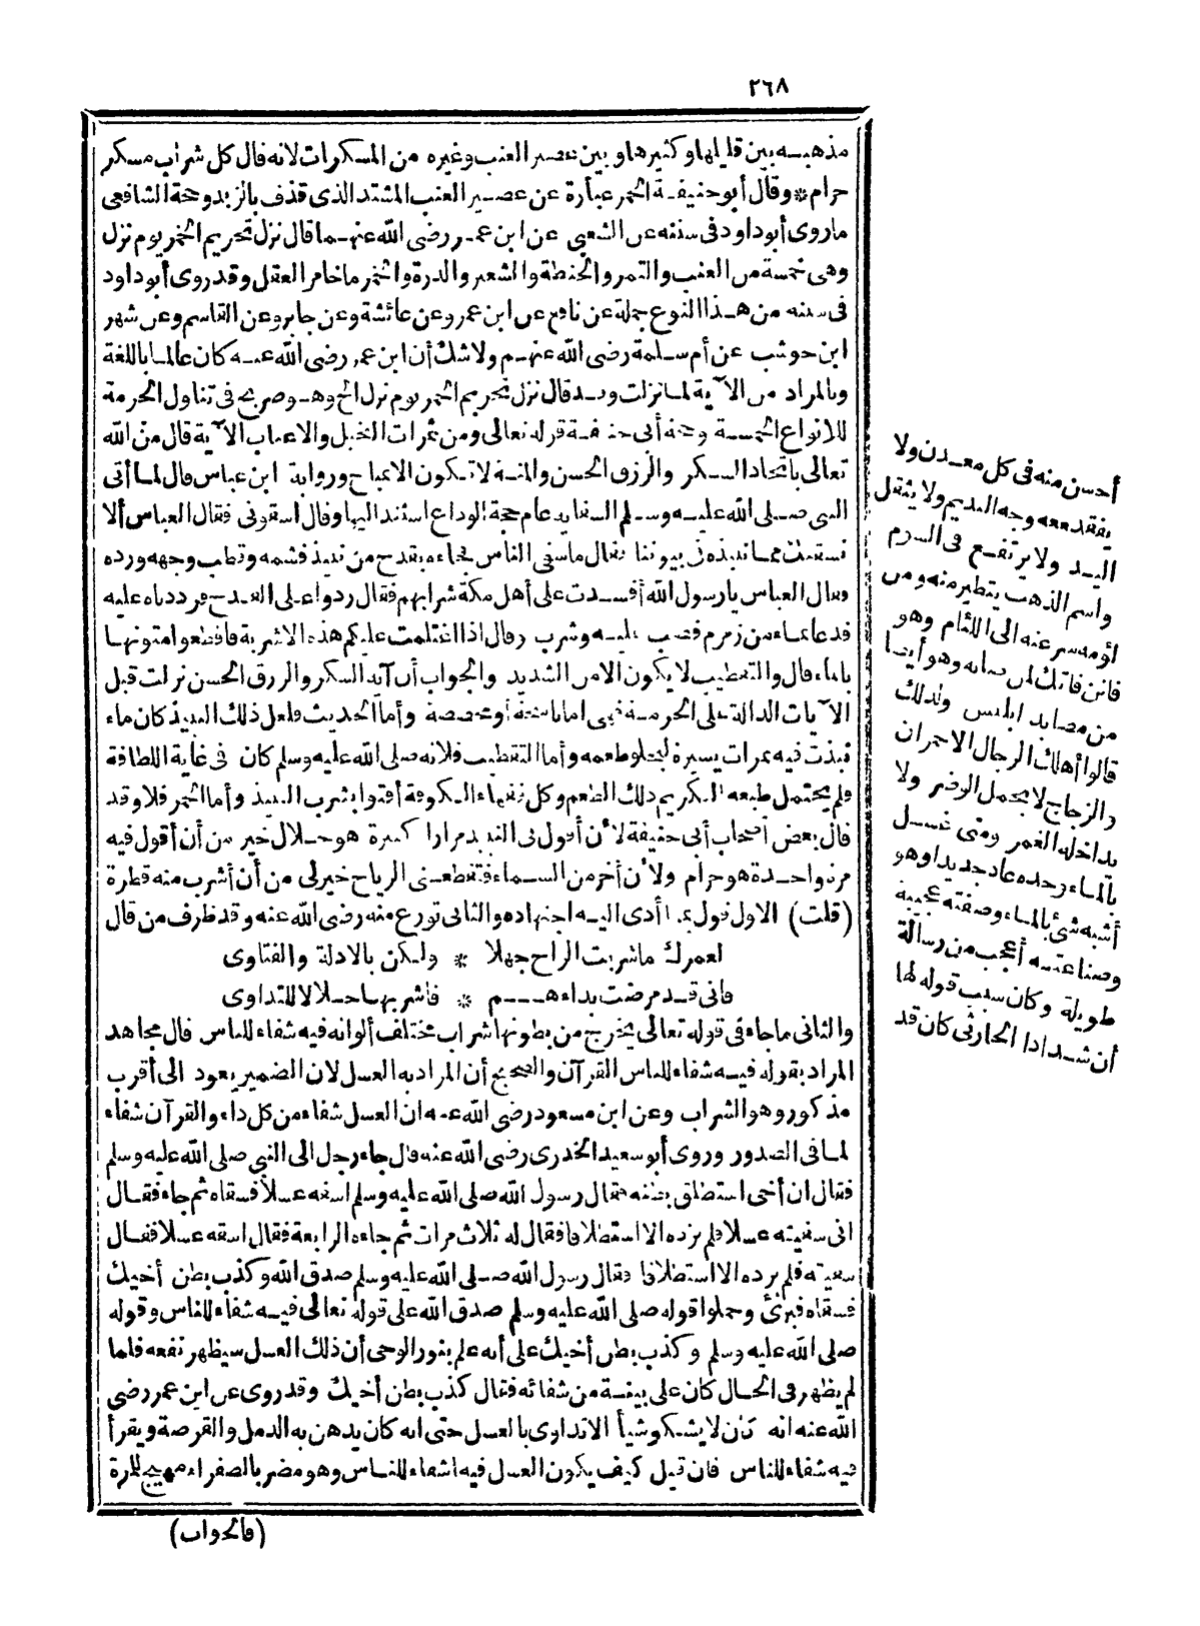 ٢٦٨
مذهبه بين قليلها وكثيرها وبين عصير العنب وغيره من المسكرات لانه قال كل شراب مسكر
حرام * وقال أبو حنيفة الخمر عبارة عن عصير العنب المشتد الذى قذف بالزبد وحجة الشافعى
ماروى أبو داود فى سننه عن الشعبى عن ابن عمر رضى الله عنهما قال نزل تحريم الخمر يوم نزل
وهى خمسة من العنب والتمر والحنطة والشعير والذرة والخمر ما خامر العقل وقد روى أبو داود
فى سننه من هذا النوع جملة عن نافع عن ابن عمر وعن عائشة وعن جابر وعن القاسم وعن شهر
ابن حوشب عن أم سلمة رضى الله عنهم ولا شك أن ابن عمر رضى الله عنه كان عالما باللغة
وبالمراد من الآية لما نزلت وقد قال نزل تحريم الخمر يوم نزل الخ وهو صريح فى تناول الحرمة
للانواع الخمسة وحجة أبى حنيفة قوله تعالى ومن ثمرات النخيل والاعناب الآية قال منّ الله
تعالى باتخاذ السكر والرزق الحسن والمنة لا تكون الا بمباح ورواية ابن عباس قال لما أتى
النبى صلى الله عليه وسلم السقاية عام حجة الوداع استند اليها وقال اسقونى فقال العباس ألا
نسقيك مما ننبذه فى بيوتنا فقال ما سقى الناس فجاءه بقدح من نبيذ فشمه وقطب وجهه ورده
فقال العباس يا رسول الله أفسدت على أهل مكة شرابهم فقال ردوا على القدح فرددناه عليه
فدعا بماء من زمزم فصب عليه وشرب وقال اذا اغتلمت عليكم هذه الاشربة فاقطعوا متونها
بالماء قال والتقطيب لا يكون الا من الشديد والجواب أن آية السكر والرزق الحسن نزلت قبل
الآيات الدالة على الحرمة فهى اما ناسخة أو مخصصة وأما الحديث فلعل ذلك النبيذ كان ماء
نبذت فيه تمرات يسيرة ليحلو طعمه وأما التقطيب فلانه صلى الله عليه وسلم كان فى غاية اللطافة
فلم يحتمل طبعه الكريم ذلك الطعم وكل فقهاء الكوفة أفتوا بشرب النبيذ وأما الخمر فلا وقد
قال بعض أصحاب أبى حنيفة لأن أقول فى النبيذ مرارا كثيرة هو حلال خير من أن أقول فيه
مرة واحدة هو حرام ولأن أخر من السماء فتقطعنى الرياح خير لى من أن أشرب منه قطرة
(قلت) الاول قول بما أدى اليه اجتهاده والثانى تورع منه رضى الله عنه وقد ظرف من قال
لعمرك ما شربت الراح جهلا * ولكن بالادلة والفتاوى
فانى قد مرضت بداء هم * فاشربها حلالا للتداوى
والثانى ما جاء فى قوله تعالى يخرج من بطونها شراب مختلف ألوانه فيه شفاء للناس قال مجاهد
المراد بقوله فيه شفاء للناس القرآن والصحيح أن المراد به العسل لان الضمير يعود الى أقرب
مذكور وهو الشراب وعن ابن مسعود رضى الله عنه ان العسل شفاء من كل داء والقرآن شفاء
لما فى الصدور وروى أبو سعيد الخدرى رضى الله عنه قال جاء رجل الى النبى صلى الله عليه وسلم
فقال ان أخى استطلق بطنه فقال رسول الله صلى الله عليه وسلم اسقه عسلا فسقاه ثم جاء فقال
انى سقيته عسلا فلم يزده الا استطلاقا فقال له ثلاث مرات ثم جاءه الرابعة فقال اسقه عسلا فقال
سقيته فلم يزده الا استطلاقا فقال رسول الله صلى الله عليه وسلم صدق الله وكذب بطن أخيك
فسقاه فبرئ وحملوا قوله صلى الله عليه وسلم صدق الله على قوله تعالى فيه شفاء للناس وقوله
صلى الله عليه وسلم وكذب بطن أخيك على أنه علم بنور الوحى أن ذلك العسل سيظهر نفعه فلما
لم يظهر فى الحال كان على بينة من شفائه فقال كذب بطن أخيك وقد روى عن ابن عمر رضى
الله عنه انه كان لا يشكو شيأ الا تداوى بالعسل حتى انه كان يدهن به الدمل والقرصة ويقرأ
فيه شفاء للناس فان قيل كيف يكون العسل فيه اشفاء للناس وهو مضر بالصفراء مهيج للمرة
(فالجواب)
أحسن منه فى كل معدن ولا
يفقد معه وجه النديم ولا يثقل
اليد ولا يرتفع فى السوم
واسم الذهب يتطير منه ومن
لؤمه سرعته الى اللئام وهو
فاتن فاتك لمن صانه وهو أيضا
من مصايد ابليس ولذلك
قالوا أهلك الرجال الاحمران
والزجاج لا يحمل الوضر ولا
يداخله الغمر ومتى غسل
بالماء وحده عاد جديدا وهو
أشبه شئ بالماء وصفته عجيبة
وصناعته أعجب من رسالة
طويلة وكان سبب قوله لها
أن شدادا الحارثى كان قد